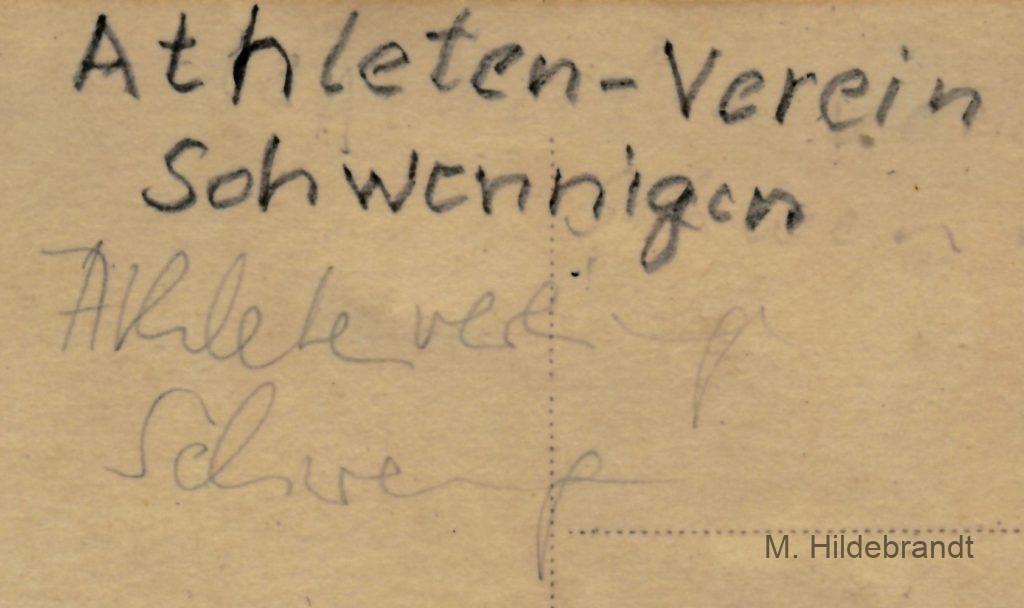 Athleten-Verein
Schwenningen
Athleten
Schwen
M. Hildebrandt